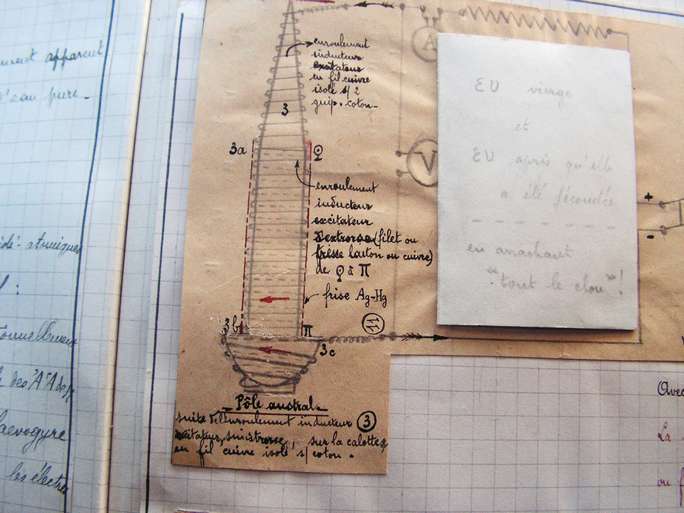 ment apparent
d'eau pure._
atomiques
:
laevogyre
les électro
enroulement
inducteur
excitateur
en fil cuivre
isolé s/ 2
guip. coton._
3
A
3a
φ
V
enroulement
inducteur
excitateur
Dextrorse (filet ou
frise laiton ou cuivre)
de φ à π
frise Ag-Hg
11
3b
π
3c
Pôle austral._
suite de l'enroulement inducteur 3
excitateur, sinistrorse, sur la calotte,
en fil cuivre isolé s/ coton.
EV vierge
et
EV après qu'elle
a été fécondée
en arrachant
"tout le clou"!
+
-
Avec
La
ou